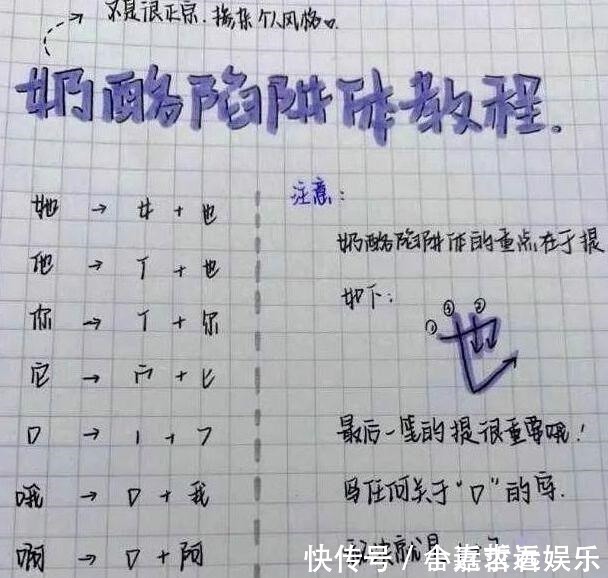 不是很正宗.掺杂个人风格。
奶酪陷阱体教程.
她 → 女 + 也
他 → 亻 + 也
你 → 亻 + 尔
它 → 宀 + 匕
口 → 丨 + ㇆
哦 → 口 + 我
啊 → 口 + 阿
注意:
奶酪陷阱体的重点在于提
如下:
① ③ ②
也
最后一笔的提很重要哦!
写任何关于“口”的字.
快传号/
娱乐